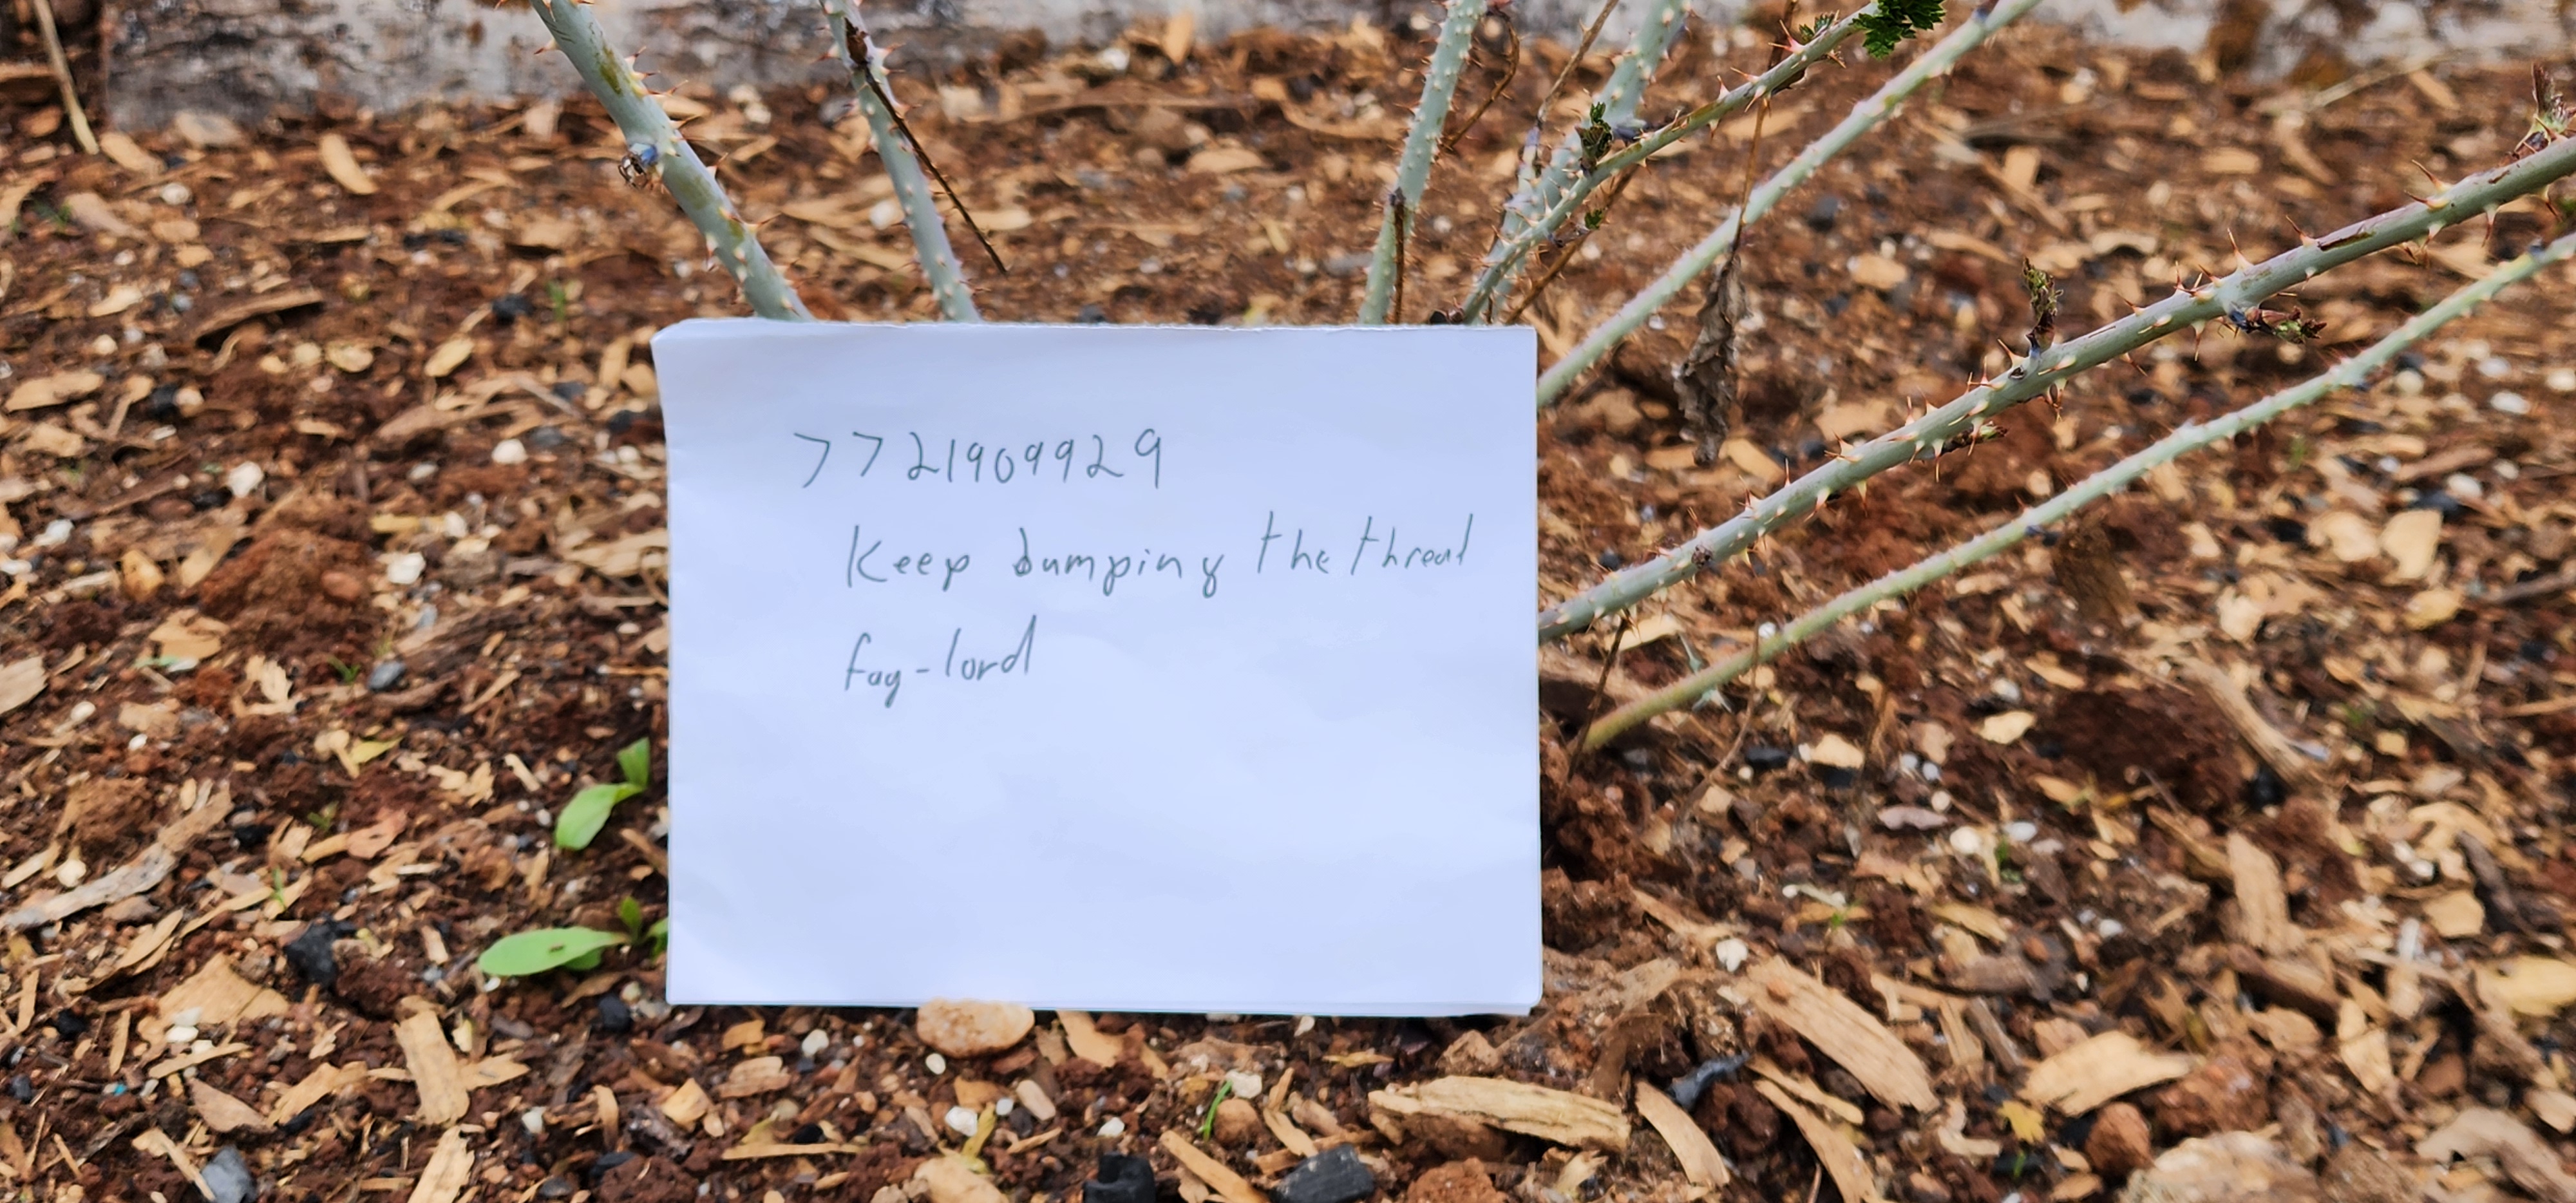 >>21909929
Keep bumping the thread
fag-lord